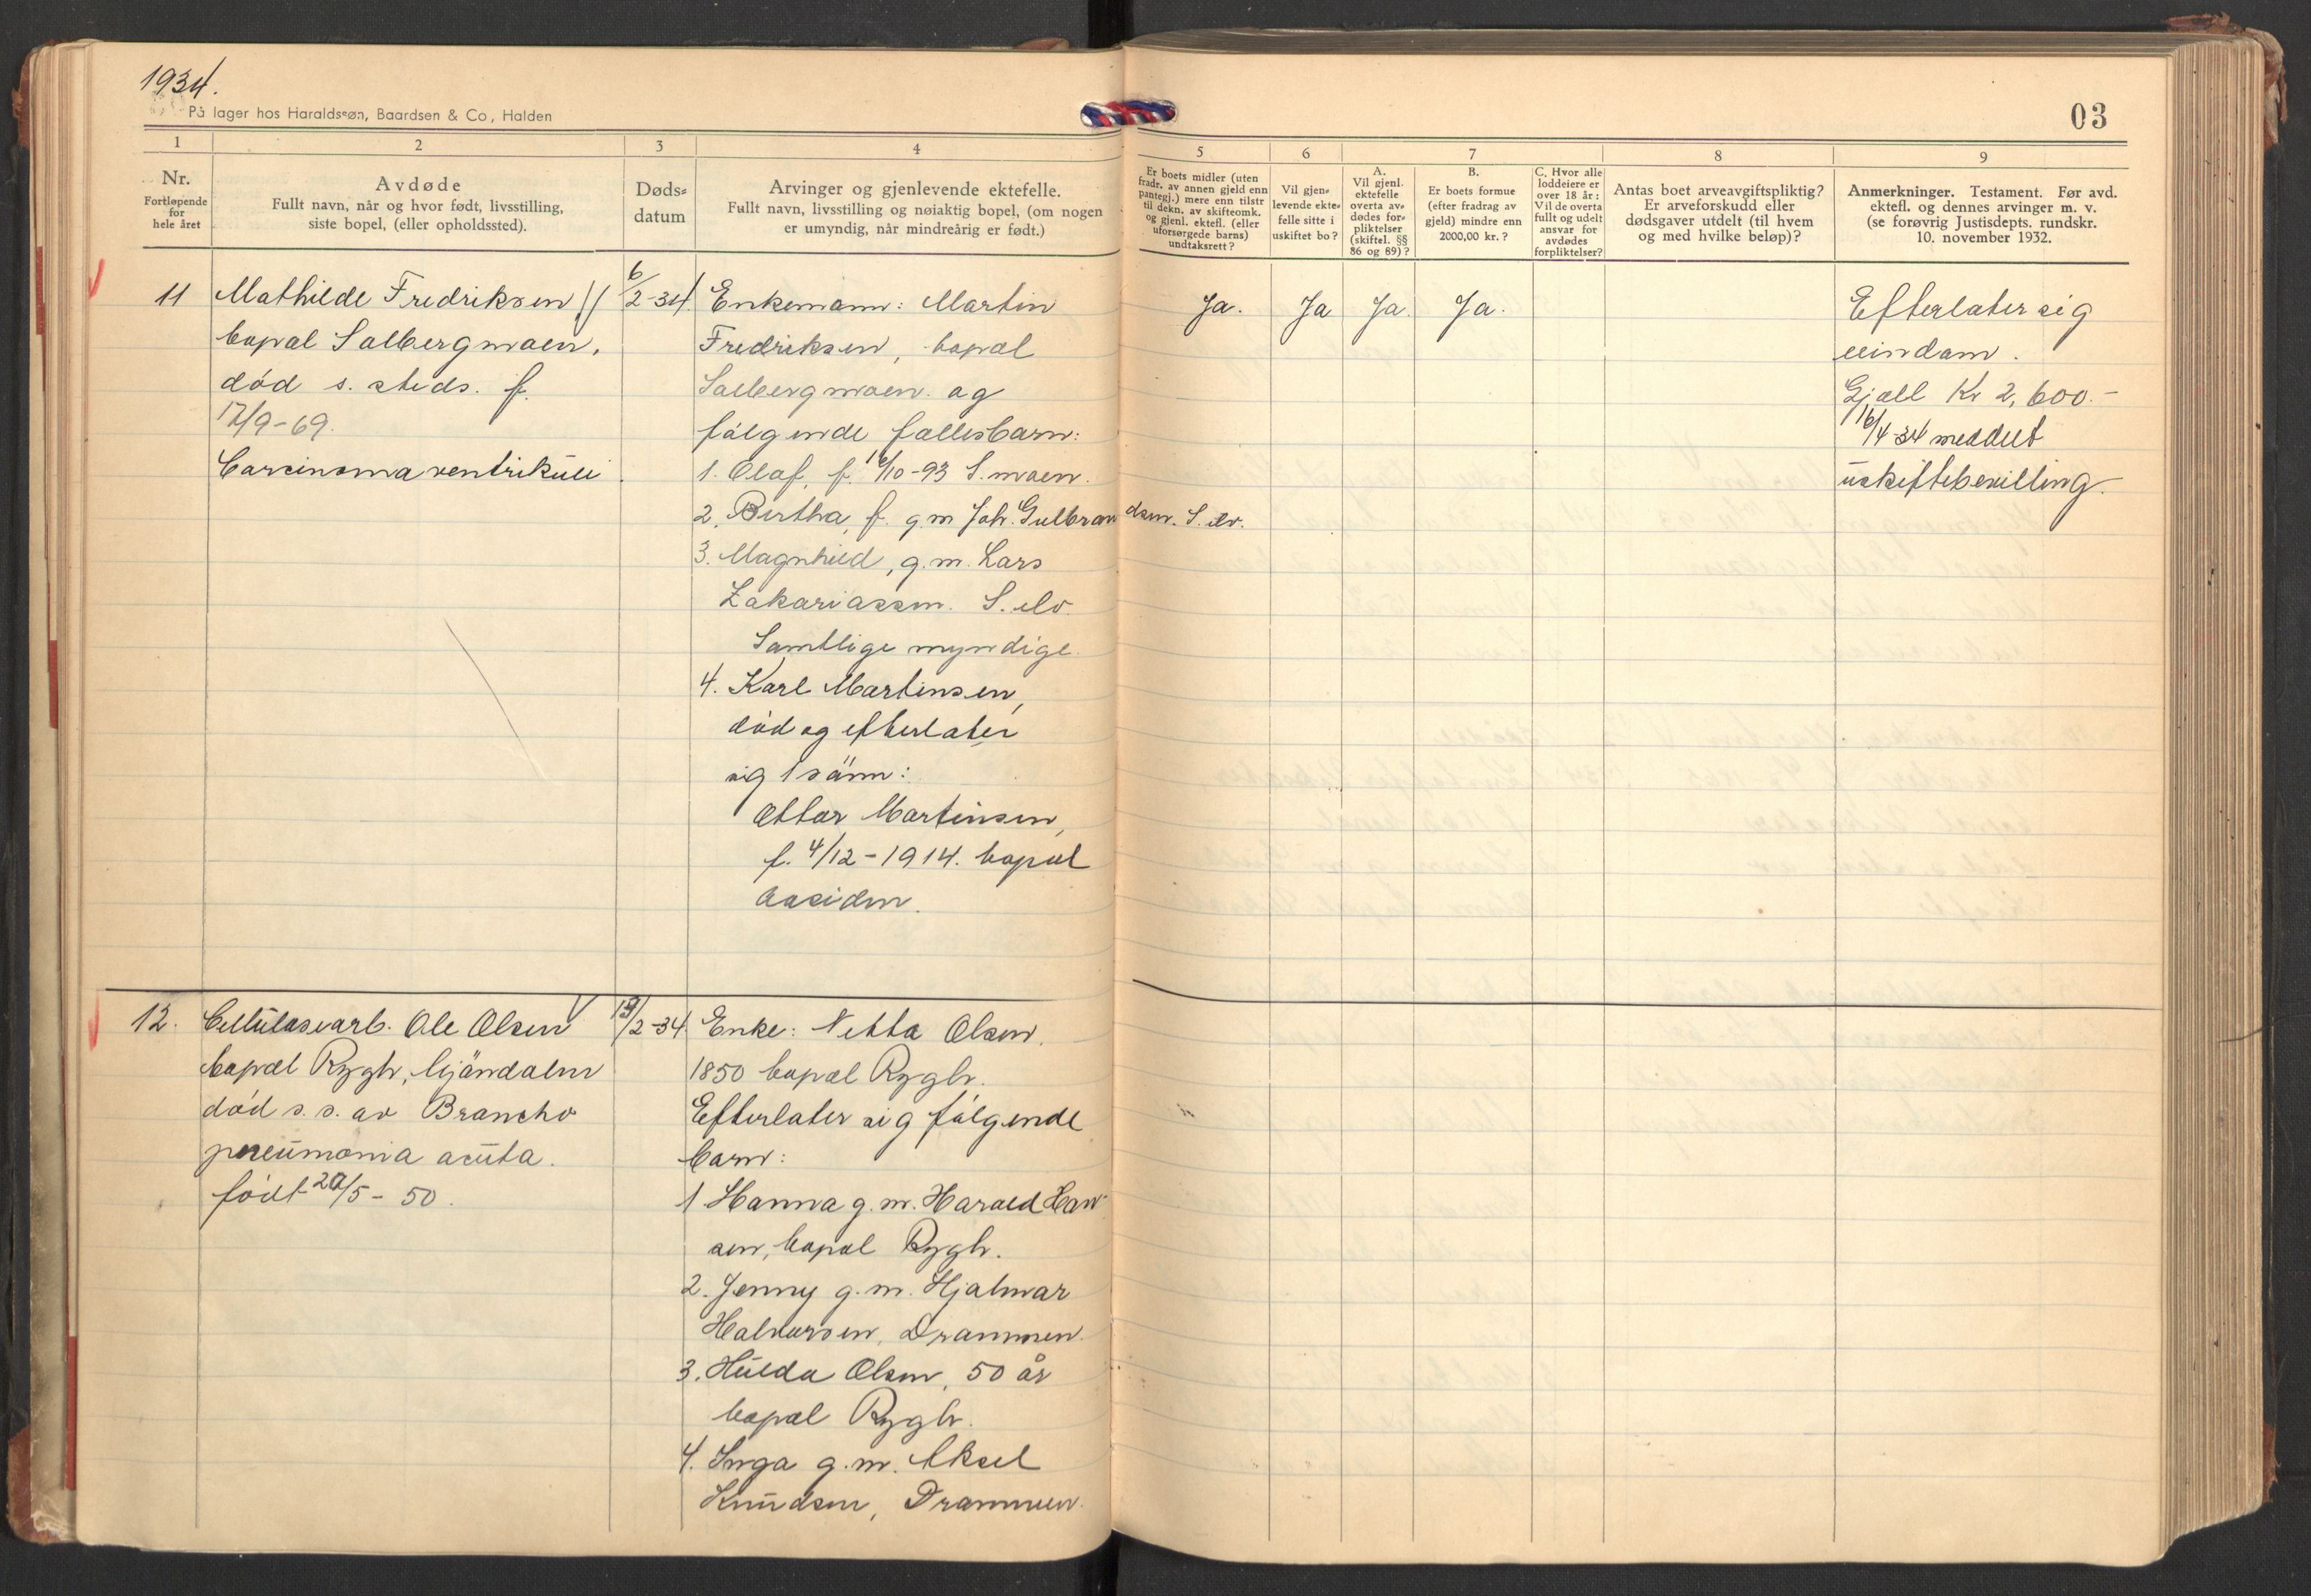 1934.
På lager hos Haraldssøn, Baardsen & Co, Halden
03
1
2
3
4
5
6
7
8
9
Nr.
Fortløpende
for
hele året
Avdøde
Fullt navn, når og hvor født, livsstilling,
siste bopel, (eller opholdssted).
Døds=
datum
Arvinger og gjenlevende ektefelle.
Fullt navn, livsstilling og nøiaktig bopel, (om nogen
er umyndig, når mindreårig er født.)
Er boets midler (uten
fradr. av annen gjeld enn
pantegj.) mere enn tilstr
til dekn. av skifteomk.
og gjenl. ektefl. (eller
uforsørgede barns)
undtaksrett?
Vil gjen=
levende ekte=
felle sitte i
uskiftet bo?
A.
Vil gjenl.
ektefelle
overta av=
dødes for=
pliktelser
(skiftel. §§
86 og 89)?
B.
Er boets formue
(efter fradrag av
gjeld) mindre enn
2000,00 kr.?
C. Hvor alle
loddeiere er
over 18 år:
Vil de overta
fullt og udelt
ansvar for
avdødes
forpliktelser?
Antas boet arveavgiftspliktig?
Er arveforskudd eller
dødsgaver utdelt (til hvem
og med hvilke beløp)?
Anmerkninger. Testament. Før avd.
ektefl. og dennes arvinger m. v.
(se forøvrig Justisdepts. rundskr.
10. november 1932.
11
Mathilde Fredriksen
bopæl Solbergmoen,
død s. steds. f.
17/9-69.
Carcinoma ventriküli
6/2-34.
Enkemann: Martin
Fredriksen, bopæl
Solbergmoen. og
følgende fællesbarn:
1. Olaf, f. /10-93 S. moen.
2. Bertha, f. g.m Joh. Gulbran dsen. S. elv.
3. Magnhild, g.m. Lars
Zakariassen. S. elv.
Samtlige myndige.
4. Karl Martinsen,
død og efterlater
sig 1 sönn:
Ottar Martinsen,
f. 4/12-1914. bopæl
Aasiden.
Ja.
Ja
Ja.
Ja.
Efterlater sig
eiendom.
Gjæll Kr 2,600.-
16/4-34 meddelt
uskiftebevilling.
12.
Cellülosearb. Ole Olsen
bopæl Rygh, Mjöndalen
død s. s. av Broncho
pneümonia acüta.
født 20/5-50.
19/2-34.
Enke: Netta Olsen.
1850 bopæl Rygh.
Efterlater sig følgende
barn:
1 Hanna g. m. Harald Han
sen, bopæl Rygh.
2. Jenny g. m. Hjalmar
Halvorsen, Drammen.
3. Hülda Olsen, 50 år
bopæl Rygh.
4. Inga g. m. Aksel
Knüdsen, Drammen.